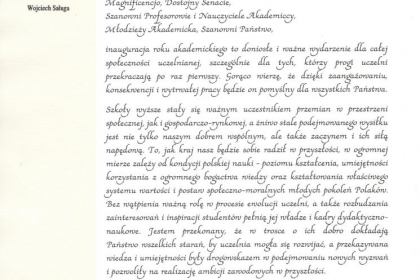 Wojciech Saługa
Magnificencjo, Dostojny Senacie,
Szanowni Profesorowie i Nauczyciele Akademiccy,
Młodzieży Akademicka, Szanowni Państwo,
inauguracja roku akademickiego to doniosłe i ważne wydarzenie dla całej
społeczności uczelnianej, szczególnie dla tych, którzy progi uczelni
przekraczają po raz pierwszy. Gorąco wierzę, że dzięki zaangażowaniu,
konsekwencji i wytrwałej pracy będzie on pomyślny dla wszystkich Państwa.
Szkoły wyższe stały się ważnym uczestnikiem przemian w przestrzeni
społecznej, jak i gospodarczo-rynkowej, a żniwo stale podejmowanego wysiłku
jest nie tylko naszym dobrem wspólnym, ale także zaczynem i ich siłą
napędową. To, jak kraj nasz będzie sobie radził w przyszłości, w ogromnej
mierze zależy od kondycji polskiej nauki - poziomu kształcenia, umiejętności
korzystania z ogromnego bogactwa wiedzy oraz kształtowania właściwego
systemu wartości i postaw społeczno-moralnych młodych pokoleń Polaków.
Bez wątpienia ważną rolę w procesie ewolucji uczelni, a także rozbudzania
zainteresowań i inspiracji studentów pełnią jej władze i kadry dydaktyczno-
naukowe. Jestem przekonany, że w trosce o ich dobro dokładają
Państwo wszelkich starań, by uczelnia mogła się rozwijać, a przekazywana
wiedza i umiejętności były drogowskazem w podejmowaniu nowych wyzwań
i pozwoliły na realizację ambicji zawodowych w przyszłości.